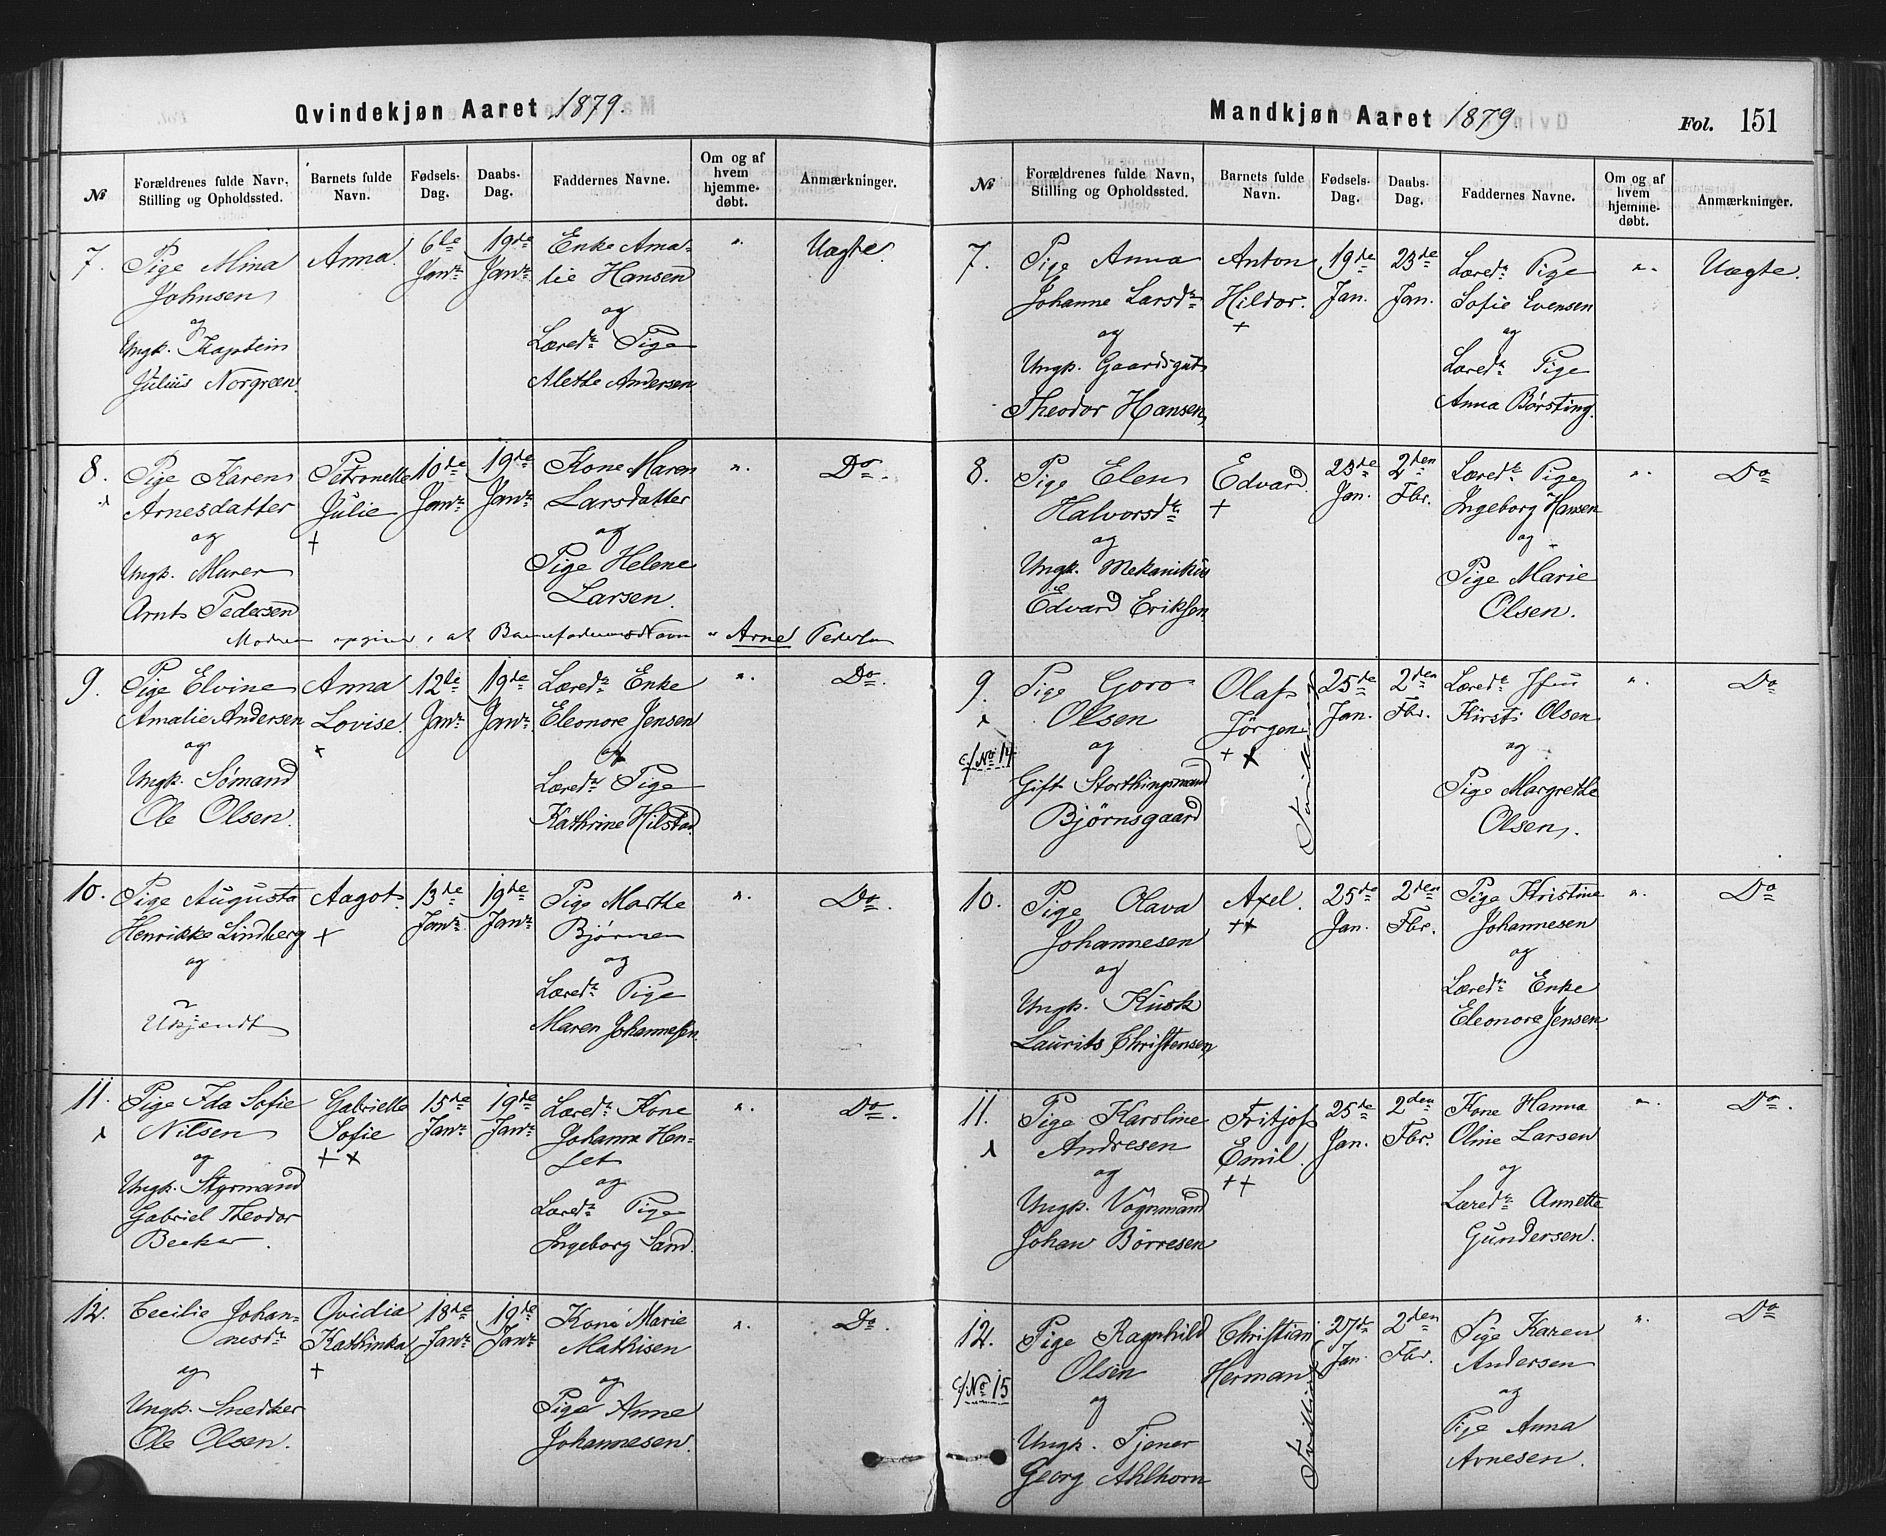 Qvindekjøn Aaret 1879.
№
Forældrenes fulde Navn, Stilling og Opholdssted.
Barnets fulde Navn.
Fødsels-Dag.
Daabs-Dag.
Faddernes Navne.
Om og af hvem hjemme-døbt.
Anmærkninger.
7.
Pige Mina
Johnsen
og
Ungk. Kaptein
Julius Norgreen
Anna.
6te
Janr
19de
Janr
Enke Ama-
lie Hansen
og
Læredr Pige
Alethe Andersen
"
Uægte.
8.
Pige Karen
Arnesdatter
og
Ungk. Murer
Arnt Pedersen
Petronelle
Julie
+
10de
Janr
19de
Janr
Kone Maren
Larsdatter
og
Pige Helene
Larsen.
"
Do.
Moderen opgiver, at Barnefaderens Navn er Arne Pedersen
9.
Pige Elvine
Amalie Andersen
og
Ungk. Sömand
Ole Olsen.
Anna
Lovise.
+
12te
Janr
19de
Janr
Læredr Enke
Eleonore Jensen
og
Læredr Pige
Kathrine Hilstad.
"
Do.
10.
Pige Augusta
Henrikke Lindberg
og
Ukjendt
Aagot.
+
13de
Janr
19de
Janr
Pige Marthe
Bjørnsen
og
Læredr Pige
Maren Johannesen.
"
Do.
11.
Pige Ida Sofie
Nilsen
og
Ungk. Styrmand
Gabriel Theodor
Becker.
Gabrielle
Sofie
++
15de
Janr
19de
Janr
Læredr Kone
Johanna Hen-
og
Læredr Pige
Ingeborg Sand.
"
Do.
12.
Cecilie Johan-
nesdr
og
Ungk. Snedker
Ole Olsen.
Ovidia
Kathinka
+
18de
Janr
19de
Janr
Kone Marie
Mathisen
og
Pige Anne
Johannesen.
"
Do.
Mandkjøn Aaret 1879
Fol. 151
№
Forældrenes fulde Navn, Stilling og Opholdssted.
Barnets fulde Navn.
Fødsels-Dag.
Daabs-Dag.
Faddernes Navne.
Om og af hvem hjemme-døbt.
Anmærkninger.
7.
Pige Anna
Johanne Larsdr
og
Ungk. Gaardsgut
Theodor Hansen,
Anton
Hildor.
+
19de
Jan.
23de
Jan.
Læredr Pige
Sofie Evensen
og
Læredr Pige
Anna Børsting.
"
Uægte.
8.
Pige Elen
Halvorsdr
og
Ungk. Mekanikus
Edvard Eriksen
Edvard.
+
23de
Jan.
2den
Fbr.
Læredr Pige
Ingeborg Hansen
og
Pige Marie
Olsen.
"
Do
9.
cf No 14
Pige Goro
Olsen
og
Gift Storthingsmand
Bjørnsgaard
Olaf
Jörgen
++
Tvilling
25de
Jan.
2den
Fbr.
Læredr
Kirsti Olsen
og
Pige Margrethe
Olsen.
"
Do
10.
Pige Olava
Johannesen
og
Ungk. Kusk
Laurits Christensen
Axel.
++
25de
Jan.
2den
Fbr.
Pige Kristine
Johannesen
og
Læredr Enke
Eleonore Jensen
"
Do
11.
Pige Karoline
Andresen
og
Ungk. Vognmand
Johan Börresen
Fritjof
Emil.
++
25de
Jan.
2den
Fbr.
Kone Hanna
Oline Larsen
og
Læredr Annette
Gundersen.
"
Do.
12.
cf No 15
Pige Ragnhild
Olsen
og
Ungk. Tjener
Georg Ahlhorn
Christian
Herman
Tvilling
27de
Jan.
2den
Fbr.
Pige Karen
Andersen
og
Pige Anna
Arnesen.
"
Do